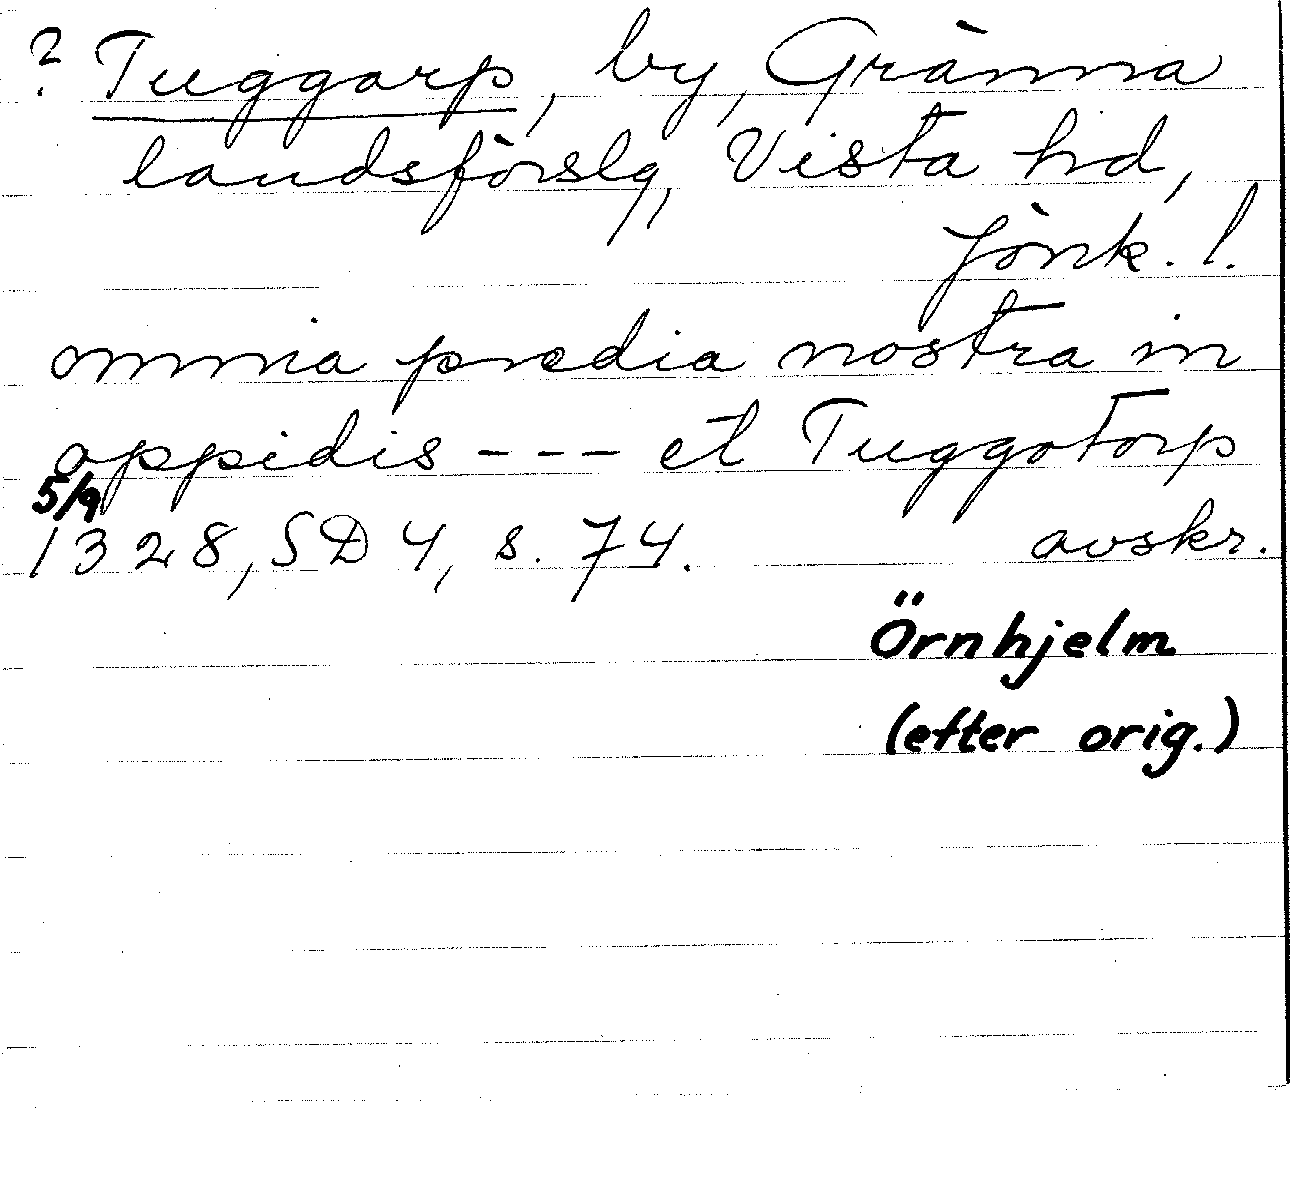 ? Tuggarp, by, Gränna
landsförslg, Vista hd,
Jönk. l.
omnia predia nostra in
oppidis --- et Tuggotorp
5/9
1328, SD 4, s. 74. avskr.
Örnhjelm
(efter orig.)